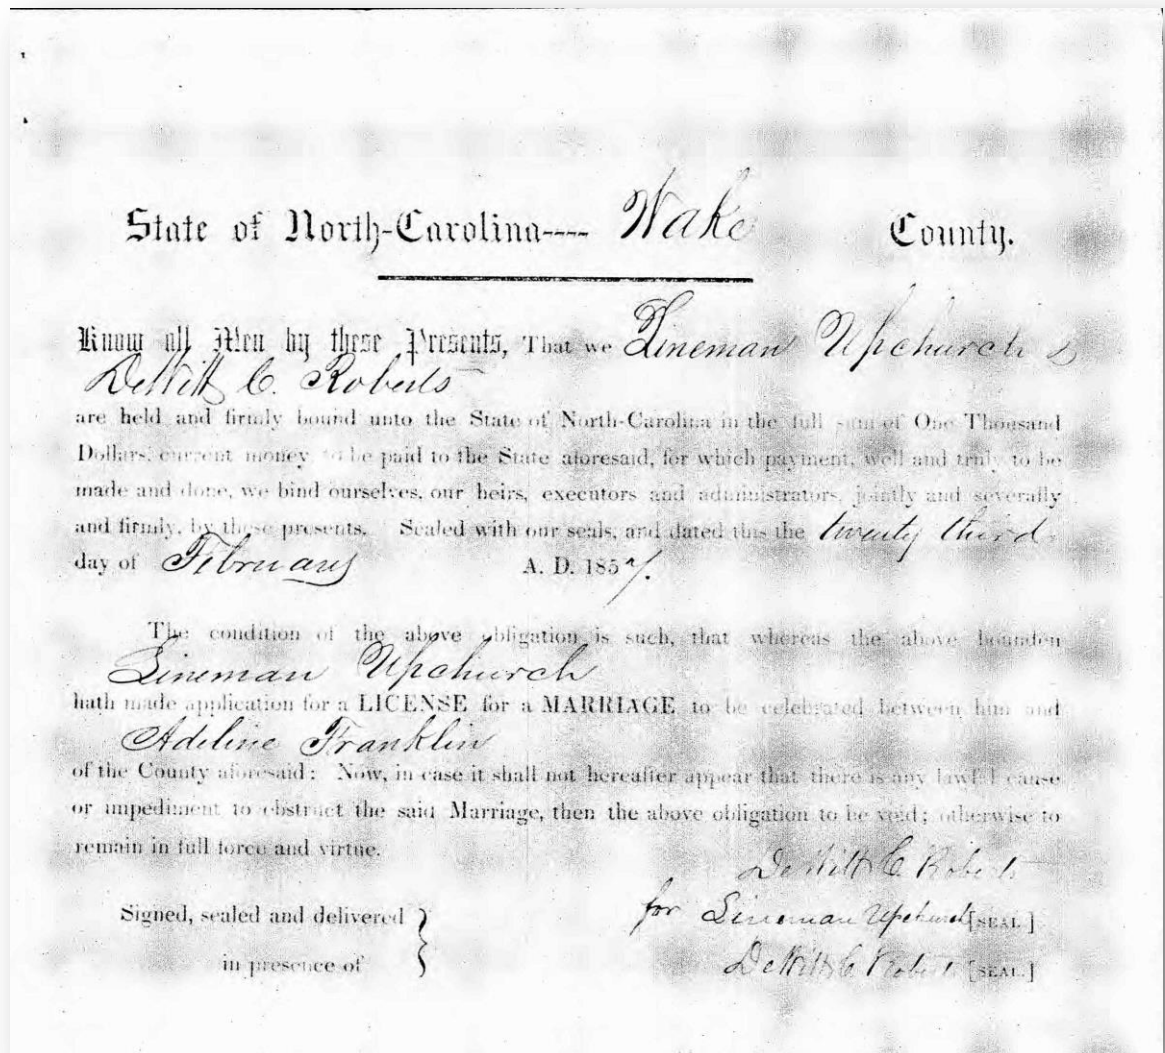 State of North-Carolina---- Wake County.
Know all Men by these Presents, That we Lineman Upchurch &
DeWitt C. Roberts
are held and firmly bound unto the State of North-Carolina in the full sum of One Thousand
Dollars, current money, to be paid to the State aforesaid, for which payment, well and truly to be
made and done, we bind ourselves, our heirs, executors and administrators, jointly and severally
and firmly, by these presents. Sealed with our seals, and dated this the twenty third
day of February A. D. 1857.
The condition of the above obligation is such, that whereas the above bounden
Lineman Upchurch
hath made application for a LICENSE for a MARRIAGE to be celebrated between him and
Adeline Franklin
of the County aforesaid: Now, in case it shall not hereafter appear that there is any lawful cause
or impediment to obstruct the said Marriage, then the above obligation to be void; otherwise to
remain in full force and virtue.
DeWitt C Roberts
Signed, sealed and delivered for Lineman Upchurch [SEAL.]
in presence of DeWitt C Roberts [SEAL.]